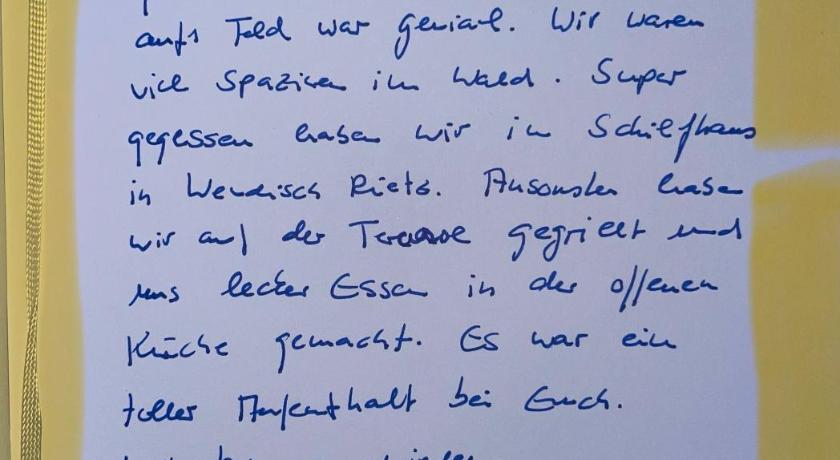 aufs Feld war genial. Wir waren
viel Spaziren im Wald. Super
gegessen haben wir im Schilfhaus
in Wendisch Rietz. Ansonsten haben
wir auf der Terrasse gegrillt und
uns lecker Essen in der offenen
Küche gemacht. Es war ein
toller Aufenthalt bei Euch.